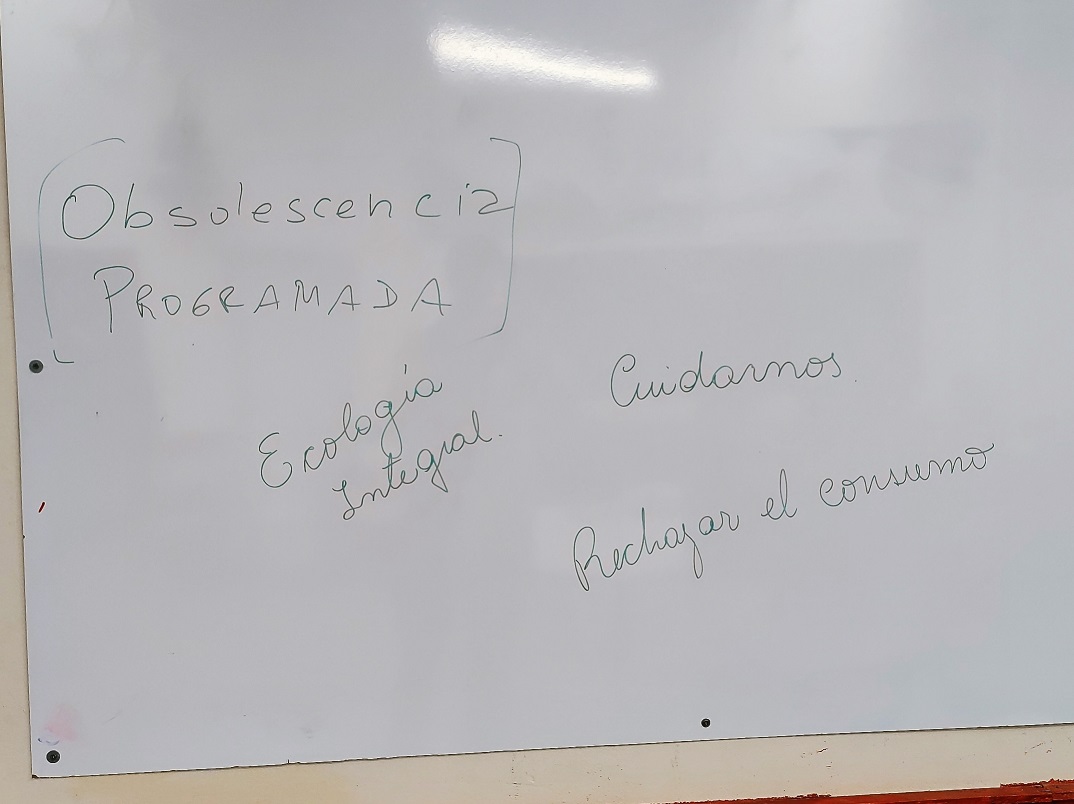 Obsolescencia
PROGRAMADA
Ecología
Integral.
Cuidarnos.
Rechazar el consumo